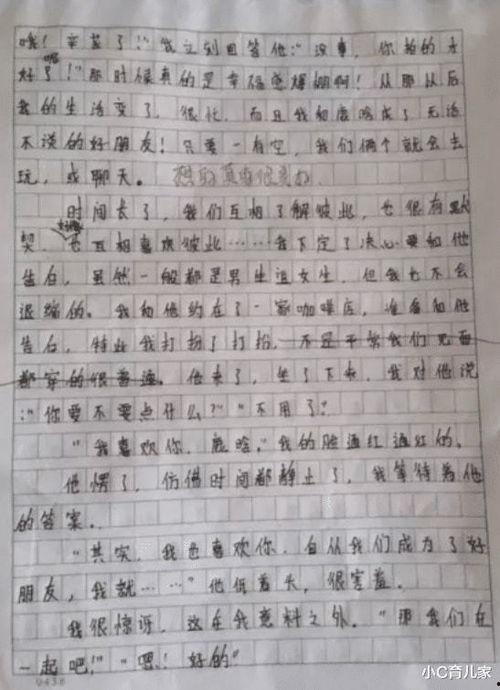 哦！辛苦了！”我立刻回答他：“没事，你拍的太
好了
喔
！”那时候真的是幸福感爆棚啊！从那以后
我的生活变了，很忙，而且我和鹿晗成了无话
不谈的好朋友！只要一有空，我们俩个就会去
玩，或聊天。
时间长了，我们互相了解彼此，也很有默
契，也互相喜欢彼此……我下定了决心要和他
告白，虽然一般都是男生追女生，但我也不会
退缩的。我和他约在了一家咖啡店，准备和他
告白，特此我打扮了打扮，不是平常我们见面
都穿的很普通。他来了，坐了下来，我对他说
：“你要不要点什么？”“不用了。”
“我喜欢你，鹿晗。”我的脸通红通红的。
他愣了，仿佛时间都静止了，我等待着他
的答案。
“其实，我也喜欢你，自从我们成为了好
朋友，我就……”他低着头，很害羞。
我很惊讶，这在我意料之外。“那我们在
一起吧！”“嗯！好的”
0438
小C育儿家